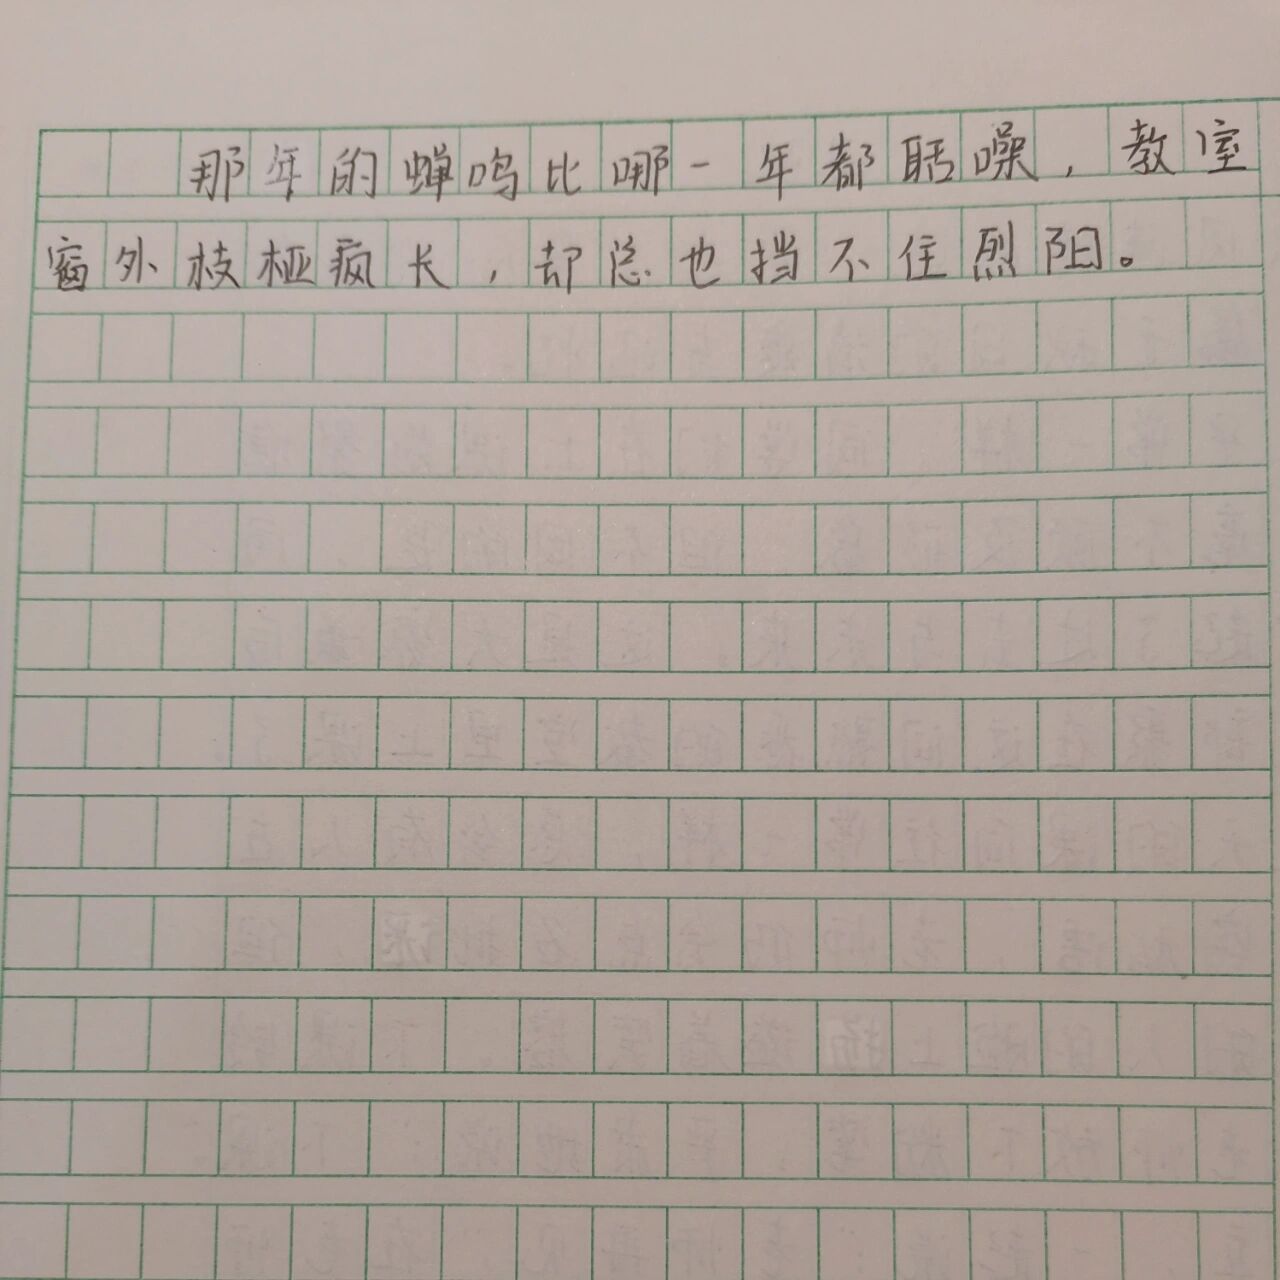 那年的蝉鸣比哪一年都聒噪，教室
窗外枝桠疯长，却总也挡不住烈阳。